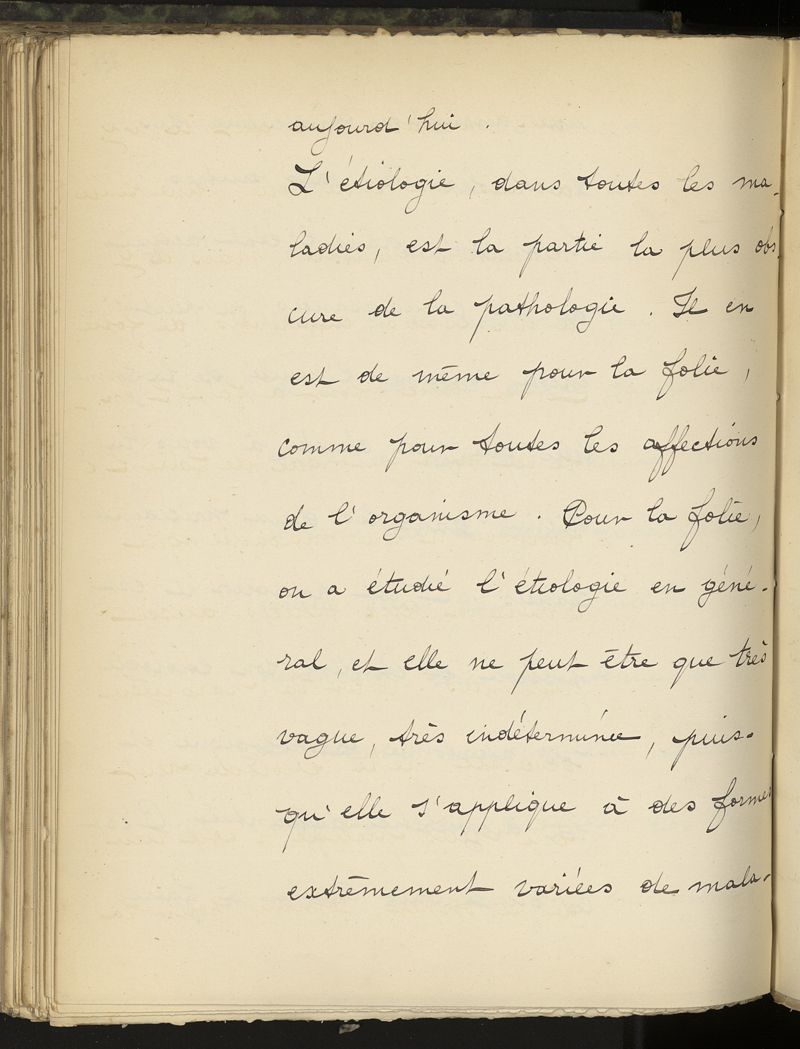 aujourd'hui.
L'étiologie, dans toutes les ma-
ladies, est la partie la plus obs
cure de la pathologie. Il en
est de même pour la folie,
comme pour toutes les affections
de l'organisme. Pour la folie,
on a étudié l'étiologie en géné-
ral, et elle ne peut être que très
vague, très indéterminée, puis-
qu'elle s'applique à des formes
extrêmement variées de mala-